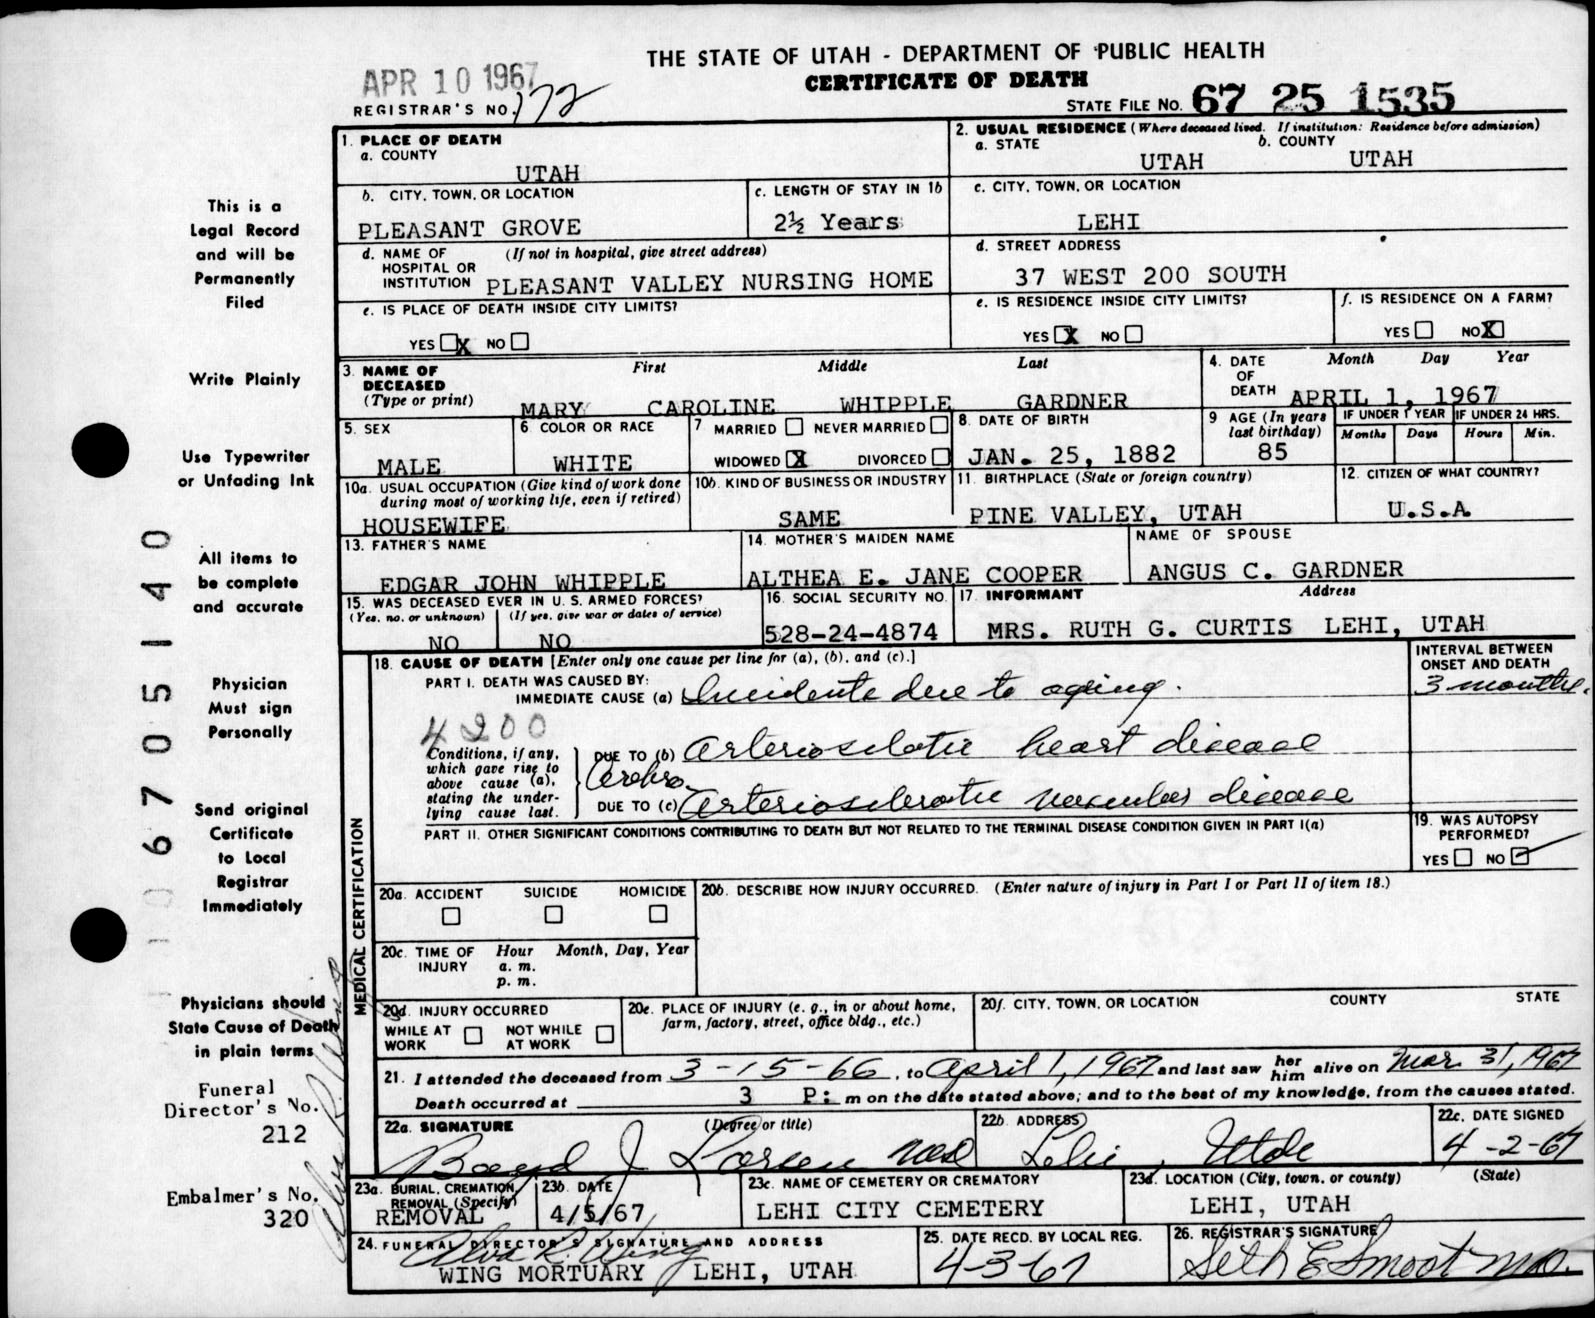 THE STATE OF UTAH - DEPARTMENT OF PUBLIC HEALTH
CERTIFICATE OF DEATH
APR 10 1967
REGISTRAR'S NO. 172
STATE FILE NO. 67 25 1535
1. PLACE OF DEATH
a. COUNTY
UTAH
2. USUAL RESIDENCE (Where deceased lived. If institution: Residence before admission)
a. STATE b. COUNTY
UTAH UTAH
b. CITY, TOWN, OR LOCATION
PLEASANT GROVE
c. LENGTH OF STAY IN 1b
2½ Years
c. CITY, TOWN, OR LOCATION
LEHI
d. NAME OF HOSPITAL OR INSTITUTION (If not in hospital, give street address)
PLEASANT VALLEY NURSING HOME
d. STREET ADDRESS
37 WEST 200 SOUTH
e. IS PLACE OF DEATH INSIDE CITY LIMITS?
YES X NO
e. IS RESIDENCE INSIDE CITY LIMITS?
YES X NO
f. IS RESIDENCE ON A FARM?
YES NO X
3. NAME OF DECEASED (Type or print)
First Middle Last
MARY CAROLINE WHIPPLE GARDNER
4. DATE OF DEATH
Month Day Year
APRIL 1, 1967
5. SEX
MALE
6 COLOR OR RACE
WHITE
7 MARRIED NEVER MARRIED
WIDOWED X DIVORCED
8. DATE OF BIRTH
JAN. 25, 1882
9 AGE (In years last birthday)
85
IF UNDER 1 YEAR
Months Days
IF UNDER 24 HRS.
Hours Min.
10a. USUAL OCCUPATION (Give kind of work done during most of working life, even if retired)
HOUSEWIFE
10b. KIND OF BUSINESS OR INDUSTRY
SAME
11. BIRTHPLACE (State or foreign country)
PINE VALLEY, UTAH
12. CITIZEN OF WHAT COUNTRY?
U.S.A
13. FATHER'S NAME
EDGAR JOHN WHIPPLE
14. MOTHER'S MAIDEN NAME
ALTHEA E. JANE COOPER
NAME OF SPOUSE
ANGUS C. GARDNER
15. WAS DECEASED EVER IN U. S. ARMED FORCES?
(Yes, no, or unknown) (If yes, give war or dates of service)
NO NO
16. SOCIAL SECURITY NO.
528-24-4874
17. INFORMANT Address
MRS. RUTH G. CURTIS LEHI, UTAH
MEDICAL CERTIFICATION
18. CAUSE OF DEATH [Enter only one cause per line for (a), (b), and (c).]
INTERVAL BETWEEN ONSET AND DEATH
PART I. DEATH WAS CAUSED BY:
IMMEDIATE CAUSE (a) Incidents due to aging.
3 months.
4200
Conditions, if any, which gave rise to above cause (a), stating the underlying cause last.
DUE TO (b) Arteriosclotic heart disease
Cerebro
DUE TO (c) Arteriosclerotic vascular disease
PART II. OTHER SIGNIFICANT CONDITIONS CONTRIBUTING TO DEATH BUT NOT RELATED TO THE TERMINAL DISEASE CONDITION GIVEN IN PART I(a)
19. WAS AUTOPSY PERFORMED?
YES NO
20a. ACCIDENT SUICIDE HOMICIDE
20b. DESCRIBE HOW INJURY OCCURRED. (Enter nature of injury in Part I or Part II of item 18.)
20c. TIME OF INJURY
Hour Month, Day, Year
a. m.
p. m.
20d. INJURY OCCURRED
WHILE AT WORK NOT WHILE AT WORK
20e. PLACE OF INJURY (e. g., in or about home, farm, factory, street, office bldg., etc.)
20f. CITY, TOWN, OR LOCATION COUNTY STATE
21. I attended the deceased from 3-15-66, to April 1, 1967 and last saw her him alive on Mar 31, 1967
Death occurred at 3 P: m on the date stated above; and to the best of my knowledge, from the causes stated.
22a. SIGNATURE (Degree or title)
Boyd J Larsen MD
22b. ADDRESS
Lehi, Utah
22c. DATE SIGNED
4-2-67
23a. BURIAL, CREMATION, REMOVAL (Specify)
REMOVAL
23b. DATE
4/5/67
23c. NAME OF CEMETERY OR CREMATORY
LEHI CITY CEMETERY
23d. LOCATION (City, town, or county) (State)
LEHI, UTAH
24. FUNERAL DIRECTOR'S SIGNATURE AND ADDRESS
Alva R. Wing
WING MORTUARY LEHI, UTAH
25. DATE RECD. BY LOCAL REG.
4-3-67
26. REGISTRAR'S SIGNATURE
Seth E Smoot MD.
This is a
Legal Record
and will be
Permanently
Filed
Write Plainly
Use Typewriter
or Unfading Ink
All items to
be complete
and accurate
Physician
Must sign
Personally
Send original
Certificate
to Local
Registrar
Immediately
Physicians should
State Cause of Death
in plain terms
Funeral
Director's No.
212
Embalmer's No.
320
Alva R. Wing
106705140